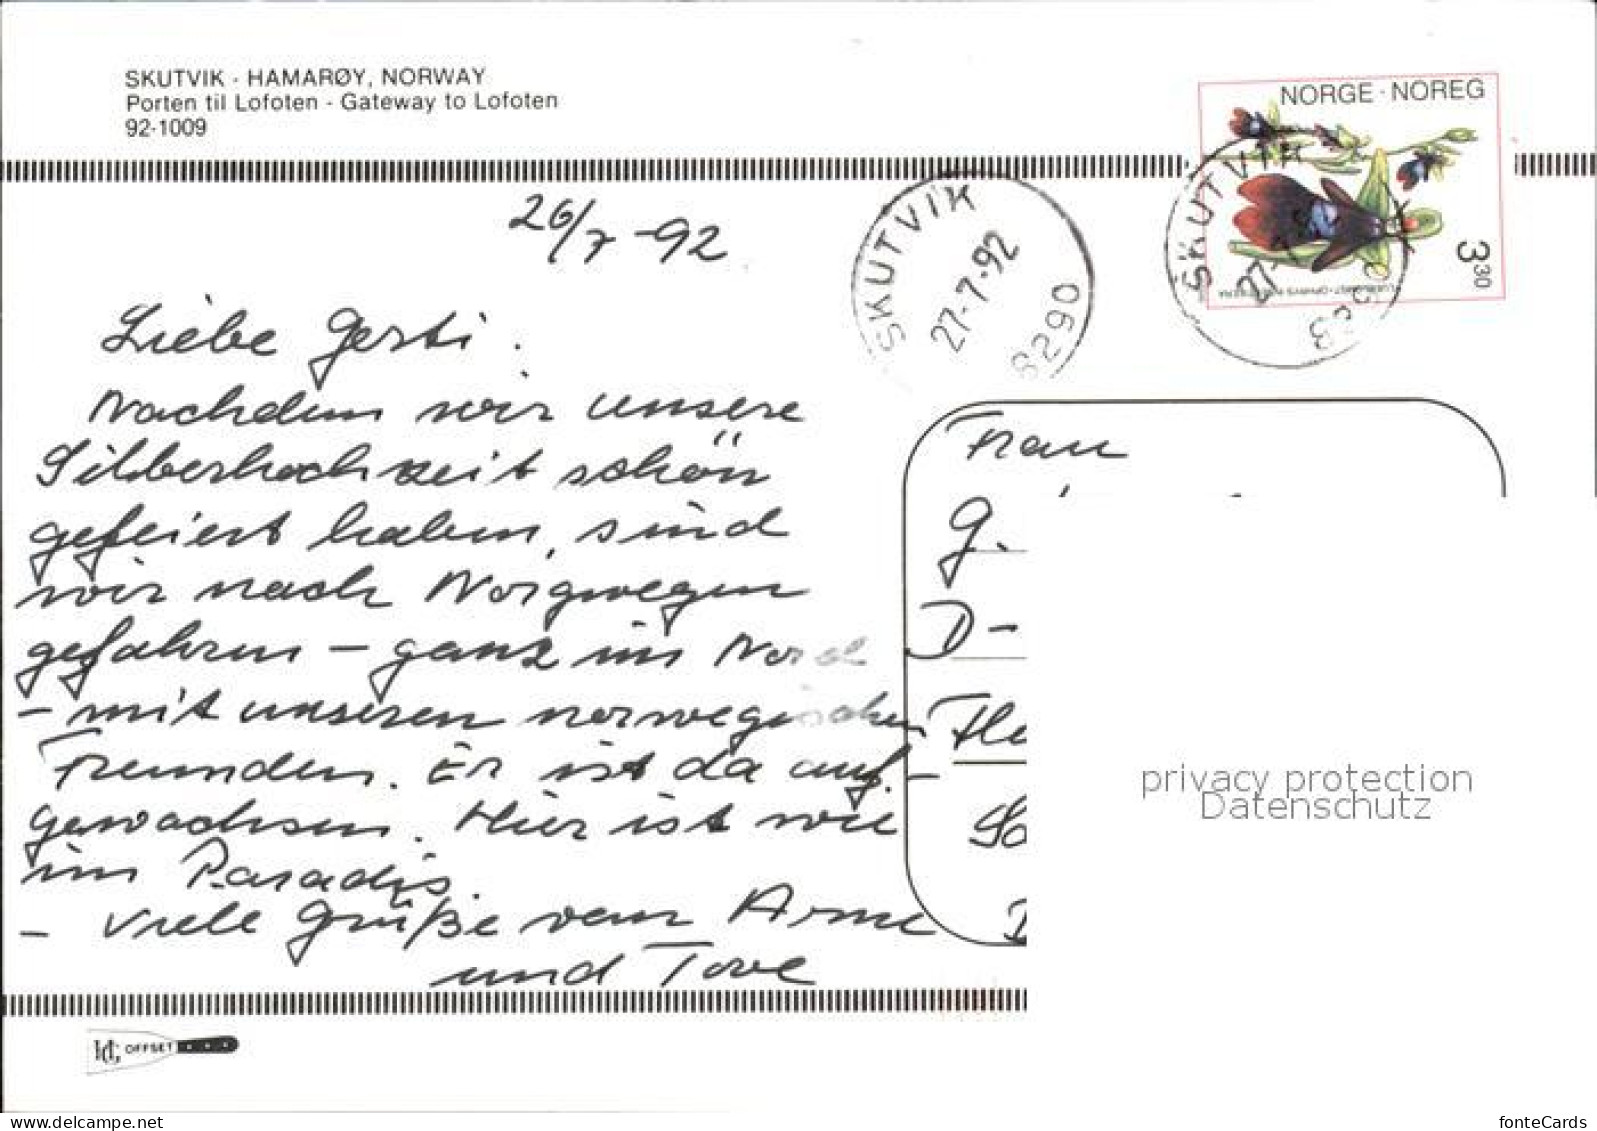 SKUTVIK · HAMARØY, NORWAY
Porten til Lofoten - Gateway to Lofoten
92-1009
NORGE · NOREG
3 30
SKUTVIK
27·7·92
8290
SKUTVIK
27
26/7 -92
Liebe Gerti.
Nachdem wir unsere
Silberhochzeit schön
gefeiert haben, sind
wir nach Norgwegen
gefahren – ganz im Nord
– mit unseren norwegischen
Freunden. Er ist da auf-
gewachsen. Hier ist wie
im Paradis.
– Viele Grüße von Arne
und Tove
Frau
G.
D-
privacy protection
Datenschutz
OFFSET
fonteCards
www.delcampe.net